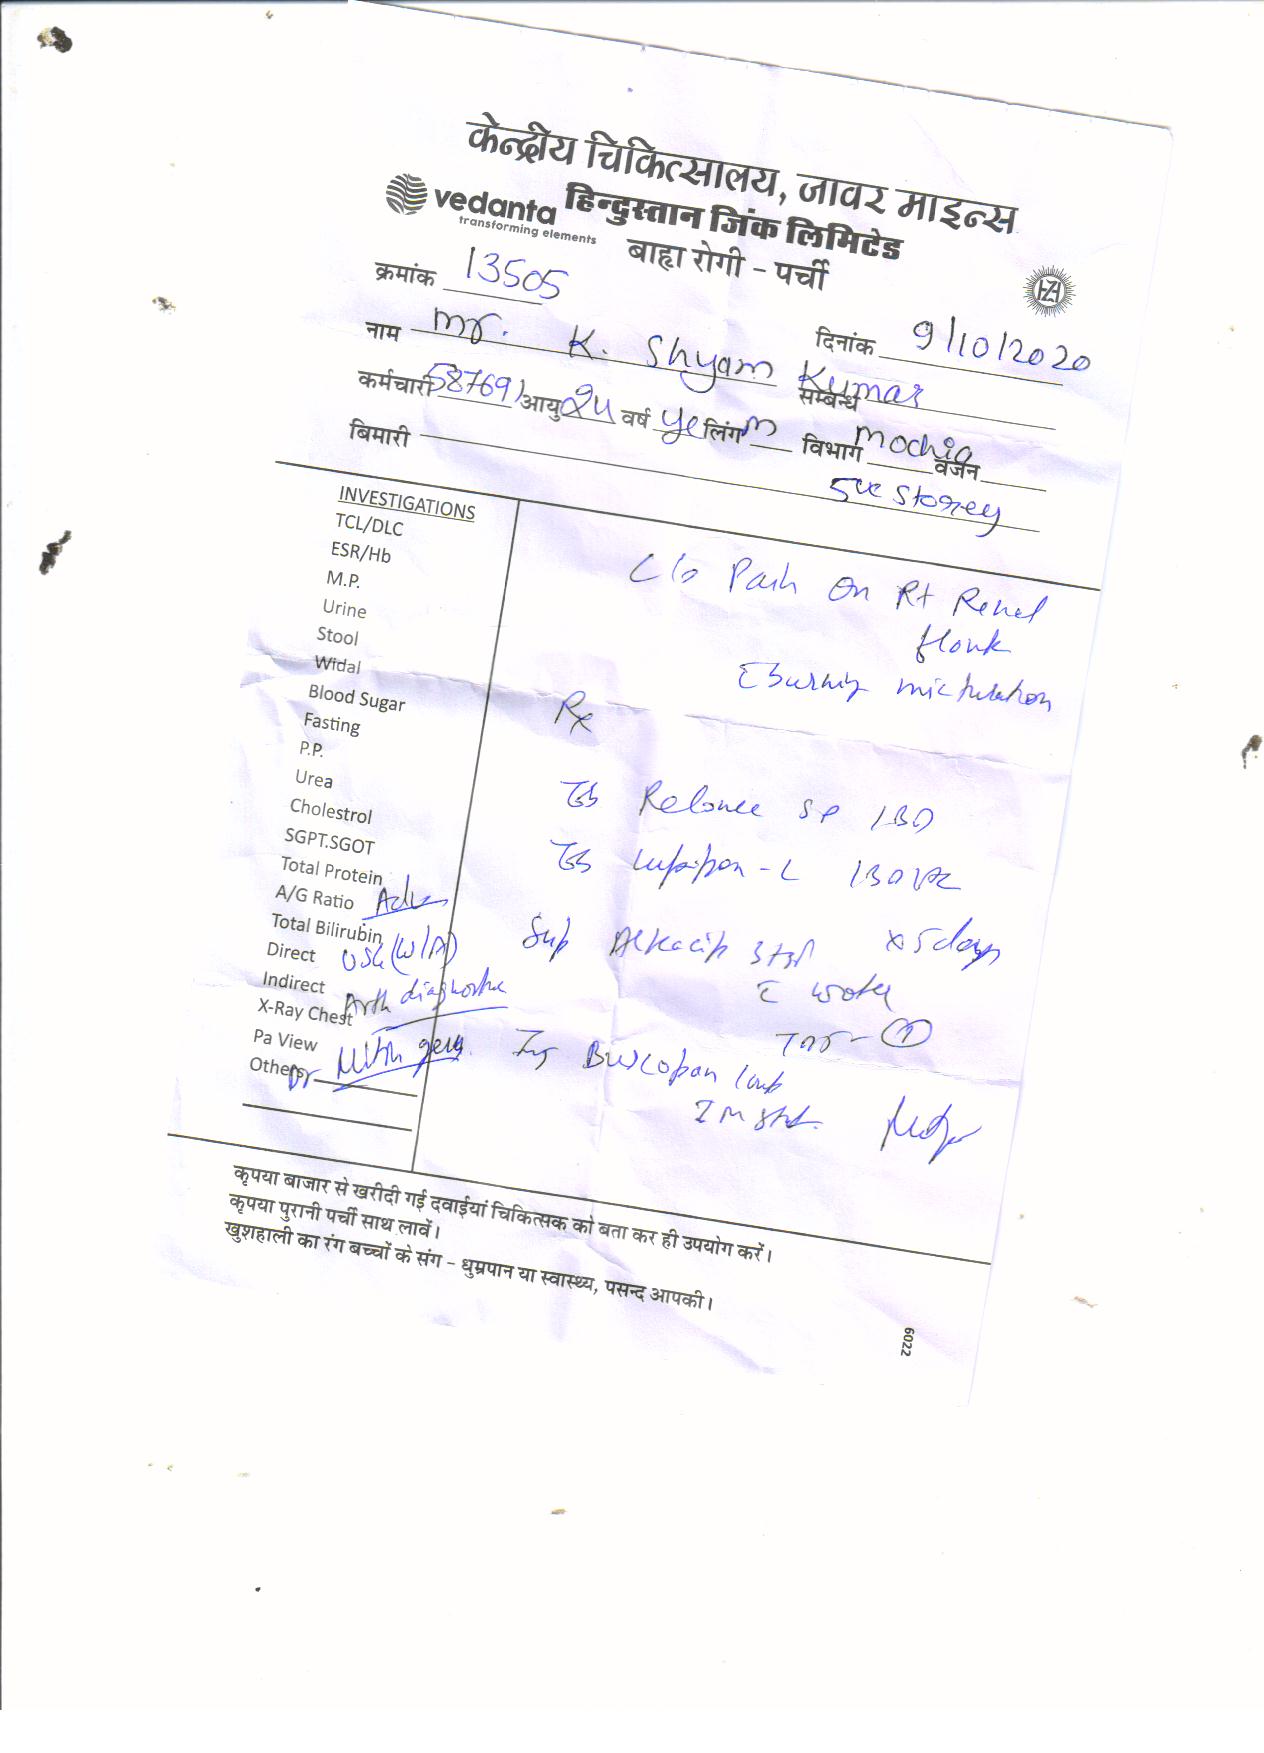 केन्द्रीय चिकित्सालय, जावर माइन्स
vedanta हिन्दुस्तान जिंक लिमिटेड
transforming elements
बाह्य रोगी - पर्ची
क्रमांक 13505
दिनांक 9/10/2020
नाम Mr. K. Shyam Kumar
सम्बन्ध
कर्मचारी 58769 आयु वर्ष ye लिंग m विभाग mochia वजन
बिमारी Storey
INVESTIGATIONS
TCL/DLC
ESR/Hb
M.P.
Urine
Stool
Widal
Blood Sugar
Fasting
P.P.
Urea
Cholestrol
SGPT.SGOT
Total Protein
A/G Ratio Adv
Total Bilirubin
Direct USG (W/A)
Indirect
X-Ray Chest Arth diagnostic
Pa View
Others Dr
C/o Pain on Rt Renal
flank
c burning micturation
Rx
Tab SP 1BD
Tab 1BD
x 5 days
Syp Alkacip 3 tsf
c water
Inj Buscopan 1amp
IM stat.
कृपया बाजार से खरीदी गई दवाईयां चिकित्सक को बता कर ही उपयोग करें।
कृपया पुरानी पर्ची साथ लावें।
खुशहाली का रंग बच्चों के संग - धुम्रपान या स्वास्थ्य, पसन्द आपकी।
6022